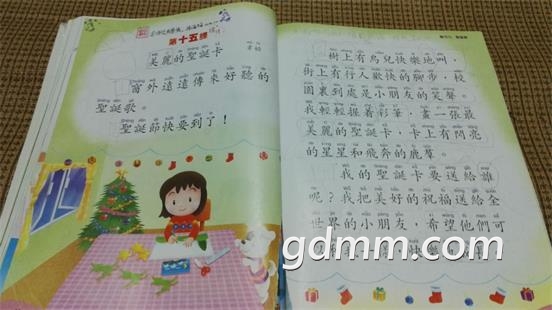 第十五課
美麗的聖誕卡
窗外遠遠傳來好聽的
聖誕歌。
聖誕節快要到了！
樹上有鳥兒快樂地叫，
街上有行人歡快的腳步，校
園裏到處是小朋友的笑聲。
我輕輕握着彩筆，畫一張最
美麗的聖誕卡，卡上有閃亮
的星星和飛奔的鹿羣。
我的聖誕卡要送給誰
呢？我把美好的祝福送給全
世界的小朋友，希望他們可
gdmm.com